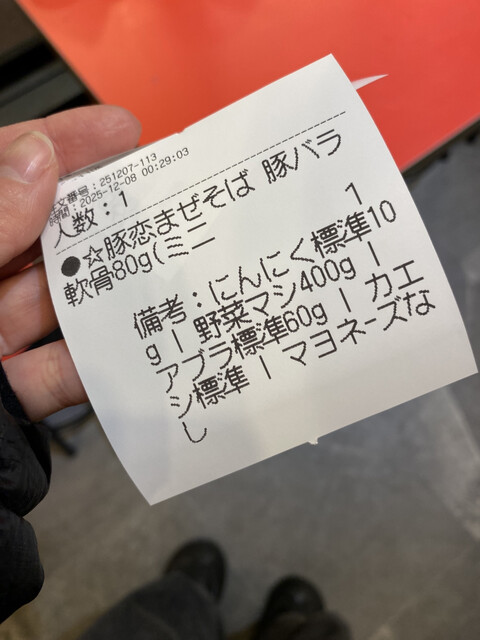 文番号：251207-113
時間：2025-12-08 00:29:03
人数：1
●☆豚恋まぜそば 豚バラ
軟骨80g(ミニ
1
備考：にんにく標準10
g | 野菜マシ400g |
アブラ標準60g | カエ
シ標準 | マヨネーズな
し